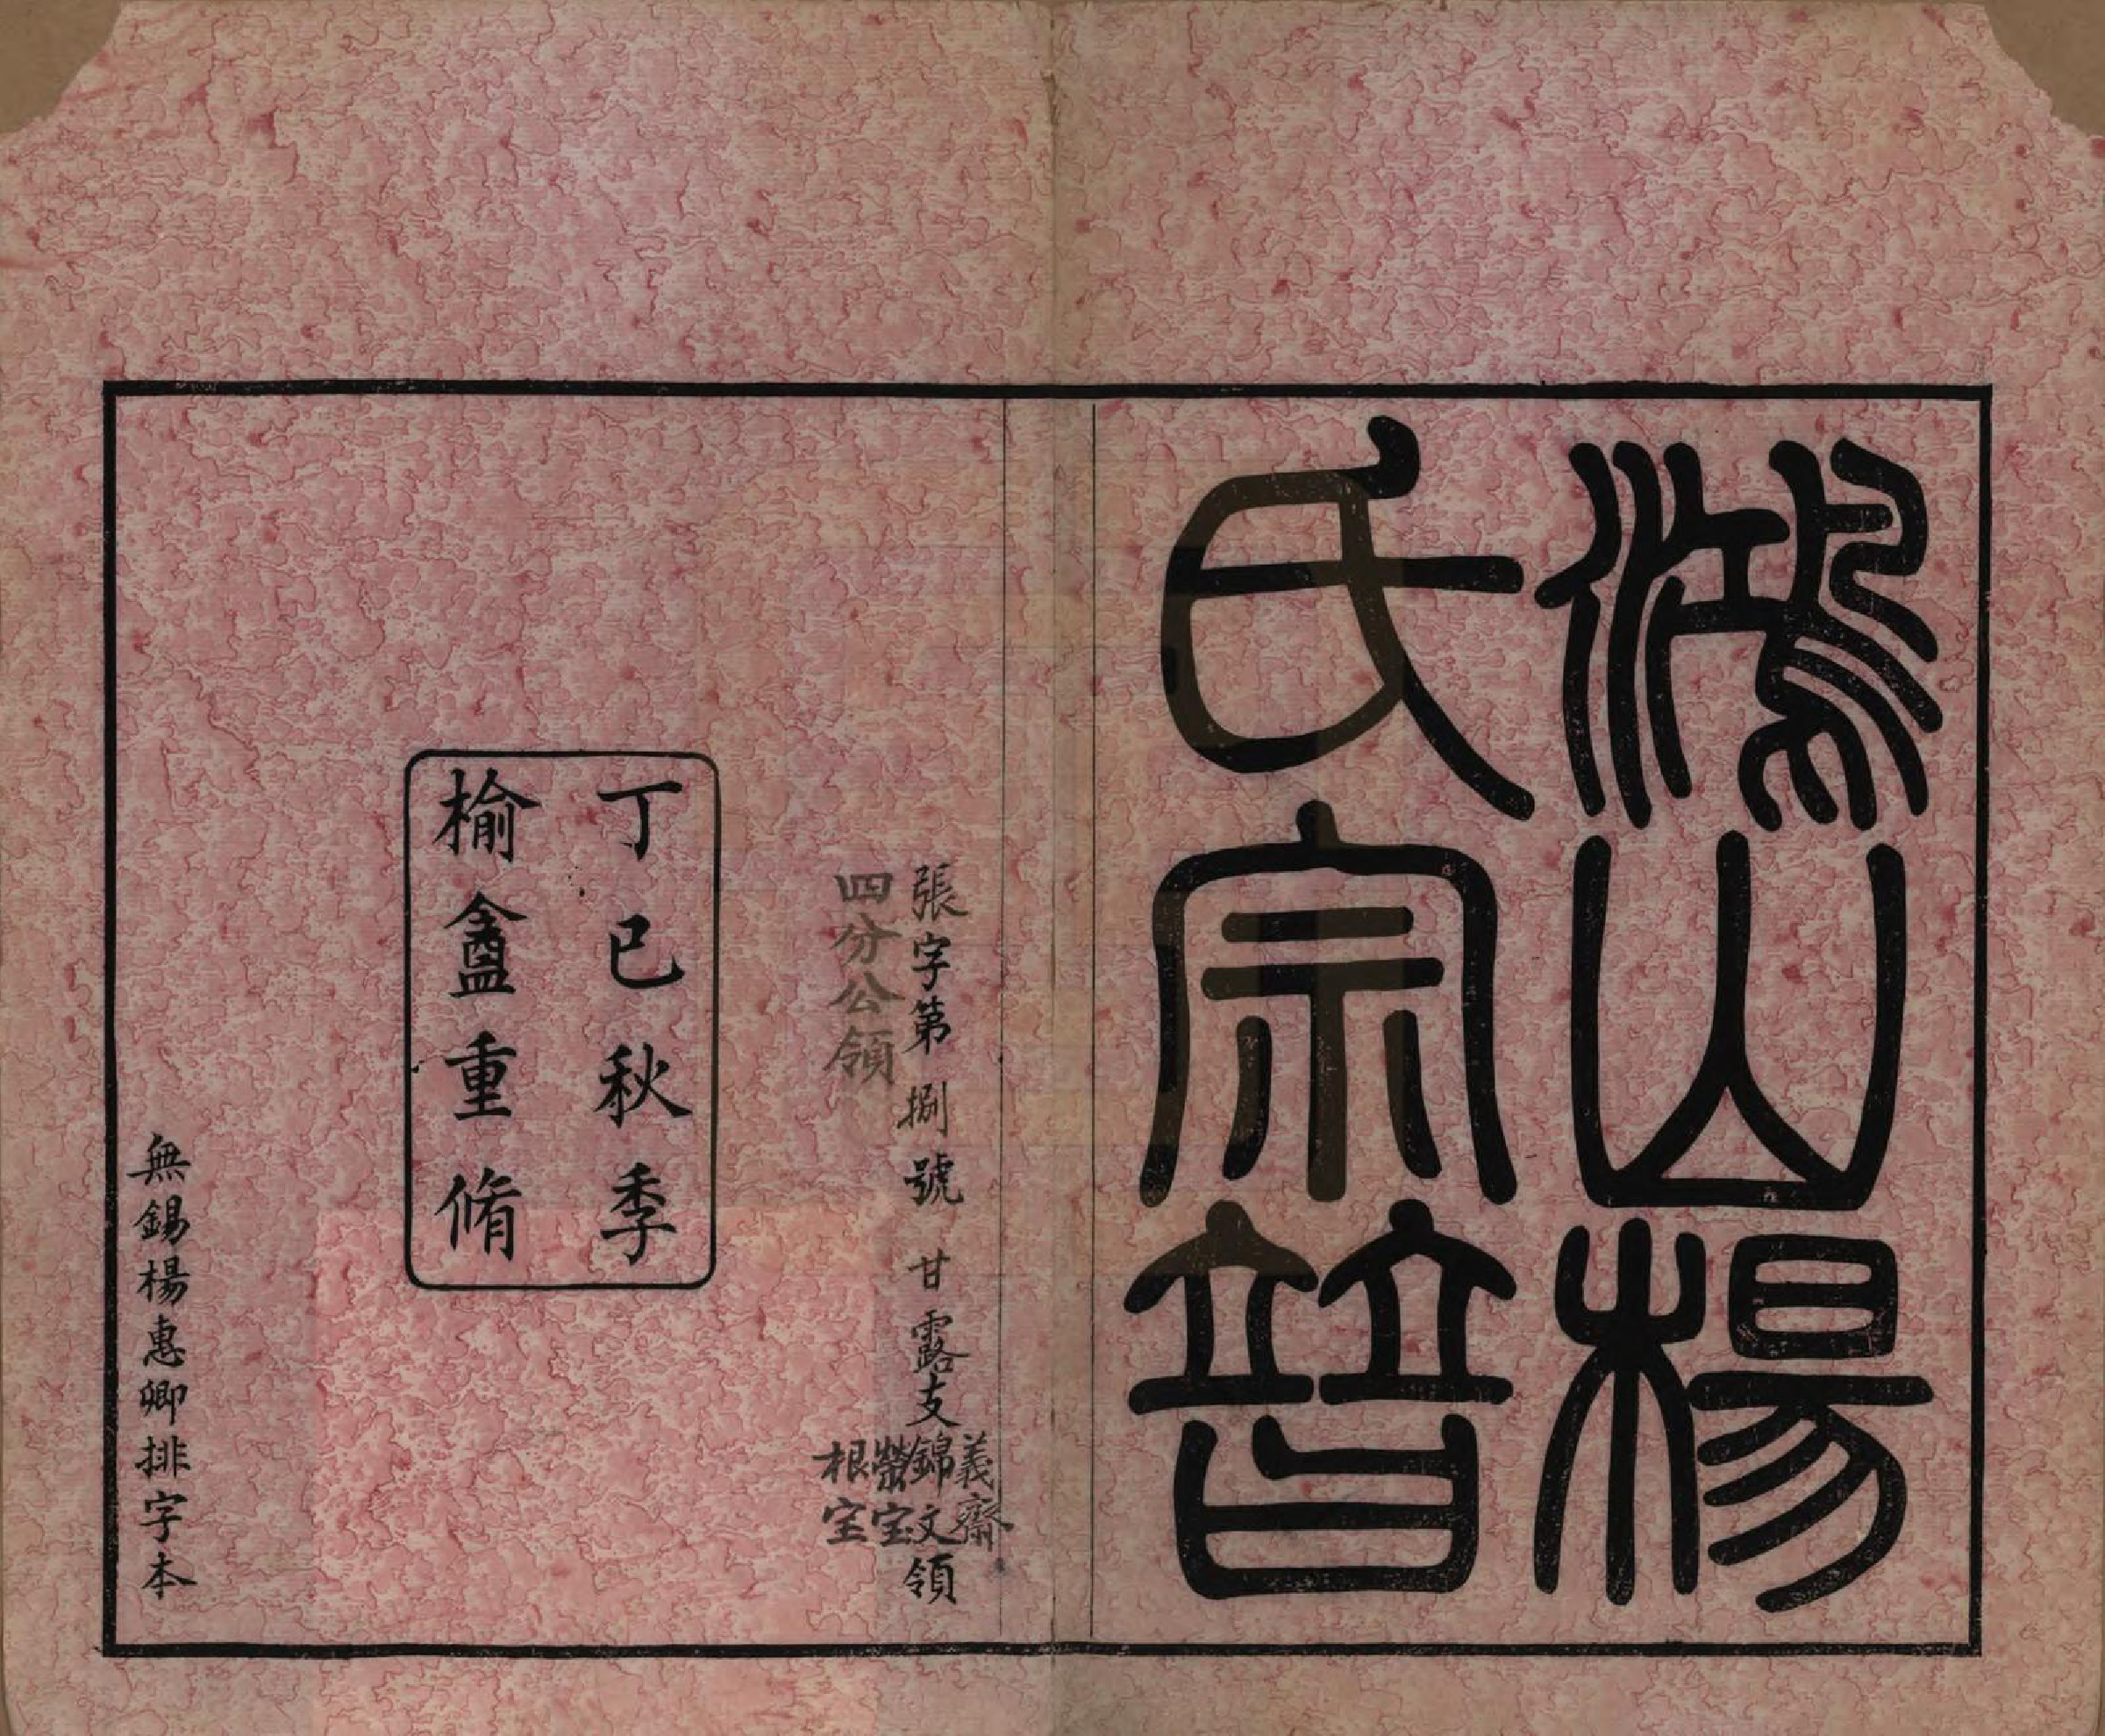 鴻山楊
氏宗譜
張字第捌號甘露支
義齋
錦文
榮宝
根宝
領
四分公領
丁巳秋季
榆盦重脩
無錫楊惠卿排字本